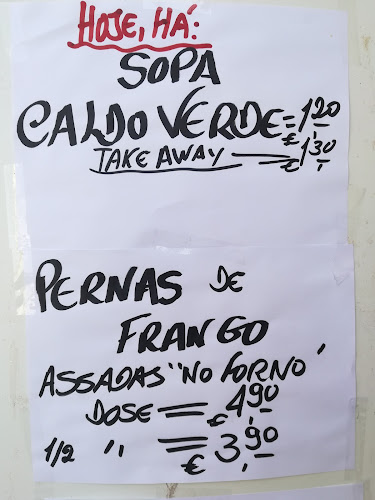 HOJE, HÁ:
SOPA
CALDO VERDE = € 1,20
TAKE AWAY — € 1,30
PERNAS DE
FRANGO
ASSADAS "NO FORNO"
DOSE = € 4,90
1/2 " = € 3,90